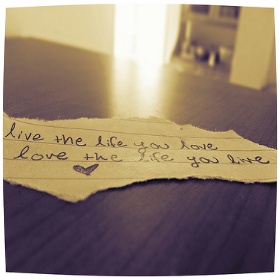 live the life you love
love the life you live